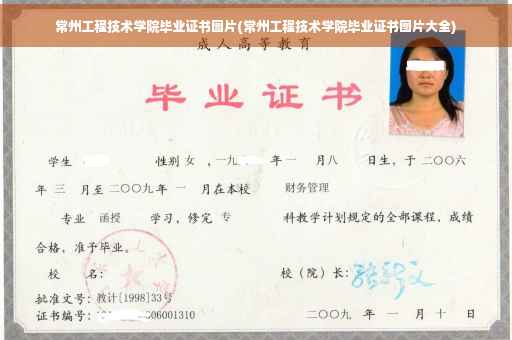 常州工程技术学院毕业证书图片(常州工程技术学院毕业证书图片大全)
成人高等教育
毕业证书
学生 性别 女 ，一九 年 一 月 八 日生，于 二〇〇六
年 三 月至 二〇〇九 年 一 月在本校 财务管理
专业 函授 学习，修完 专 科教学计划规定的全部课程，成绩
合格，准予毕业。
校 名： 校（院）长：
批准文号：教计[1998]33号
证书编号： 06001310 二〇〇九 年 一 月 十 日